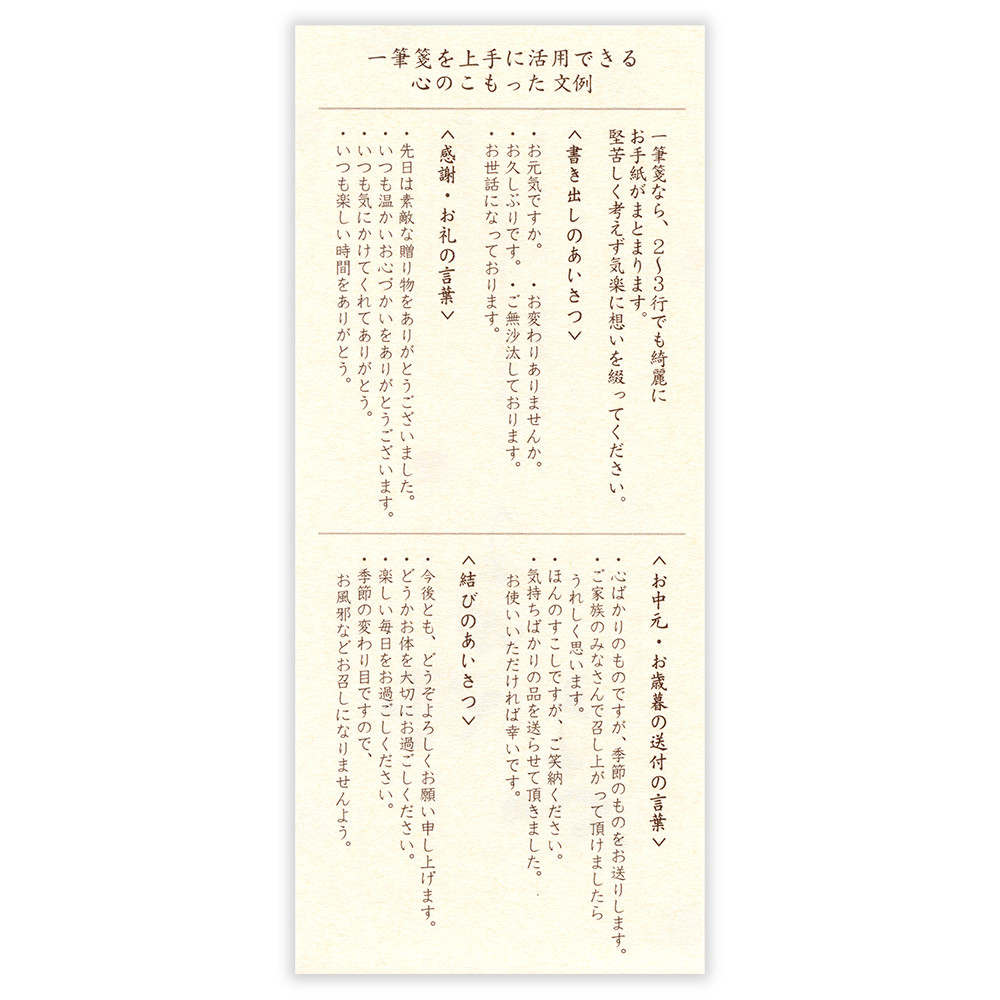 一筆箋を上手に活用できる
心のこもった文例
一筆箋なら、2～3行でも綺麗に
お手紙がまとまります。
堅苦しく考えず気楽に想いを綴ってください。
〈書き出しのあいさつ〉
・お元気ですか。 ・お変わりありませんか。
・お久しぶりです。 ・ご無沙汰しております。
・お世話になっております。
〈感謝・お礼の言葉〉
・先日は素敵な贈り物をありがとうございました。
・いつも温かいお心づかいをありがとうございます。
・いつも気にかけてくれてありがとう。
・いつも楽しい時間をありがとう。
〈お中元・お歳暮の送付の言葉〉
・心ばかりのものですが、季節のものをお送りします。
・ご家族のみなさんで召し上がって頂けましたら
うれしく思います。
・ほんのすこしですが、ご笑納ください。
・気持ちばかりの品を送らせて頂きました。
お使いいただければ幸いです。
〈結びのあいさつ〉
・今後とも、どうぞよろしくお願い申し上げます。
・どうかお体を大切にお過ごしください。
・楽しい毎日をお過ごしください。
・季節の変わり目ですので、
お風邪などお召しになりませんよう。